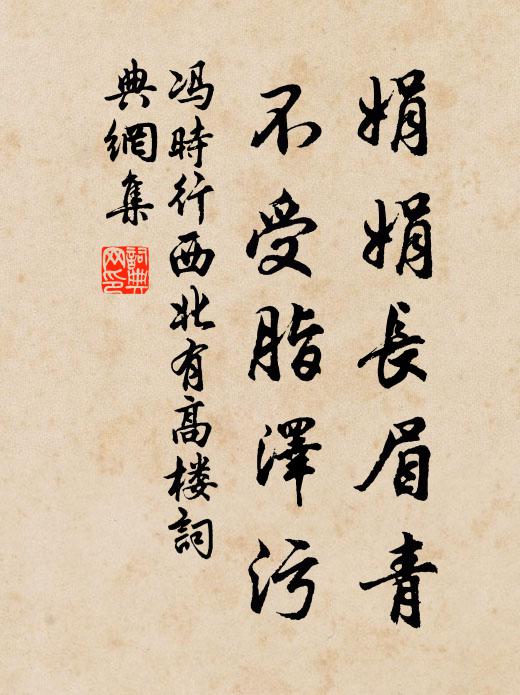 娟娟長眉青
不受脂澤污
冯時行西北有高楼詞
典網集
詞典
网印